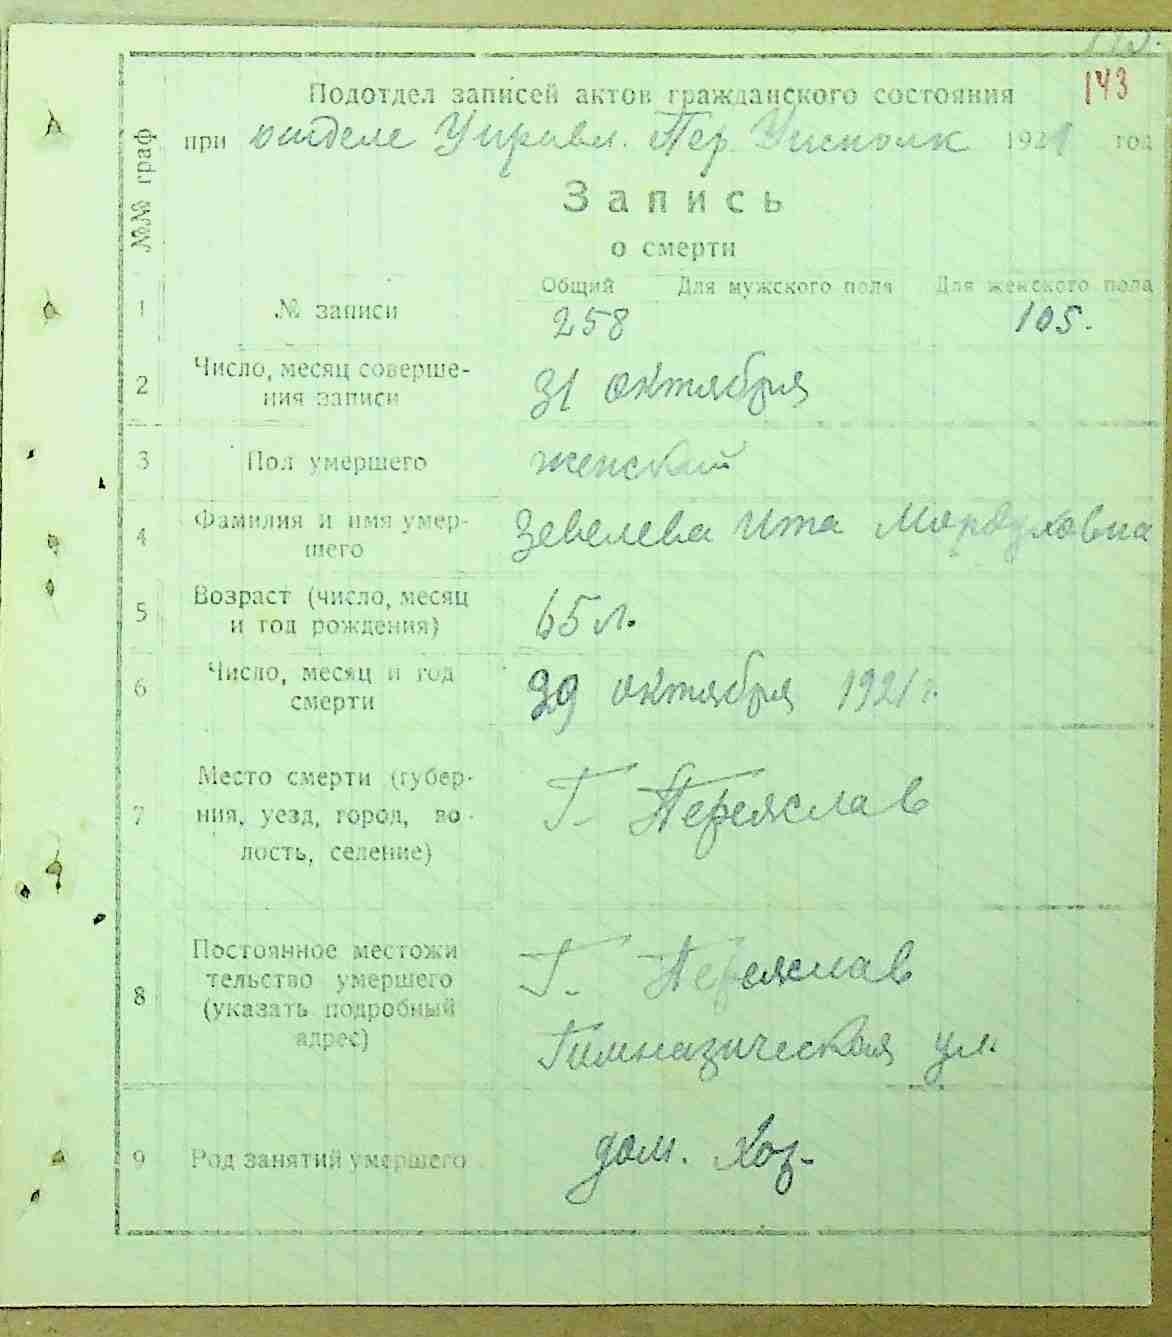 143
Подотдел записей актов гражданского состояния
при отделе Управл. Пер. Уисполк 1921 год
№№ граф
Запись
о смерти
Общий Для мужского пола Для женского пола
1 № записи 258 105.
2 Число, месяц соверше-
ния записи 31 октября
3 Пол умершего женский
4 Фамилия и имя умер-
шего Зевелева Ита Мордуховна
5 Возраст (число, месяц
и год рождения) 65 л.
6 Число, месяц и год
смерти 29 октября 1921 г.
7 Место смерти (губер-
ния, уезд, город, во-
лость, селение) Г. Переяслав
8 Постоянное местожи
тельство умершего
(указать подробный
адрес) Г. Переяслав
Гимназическая ул.
9 Род занятий умершего дом. хоз.